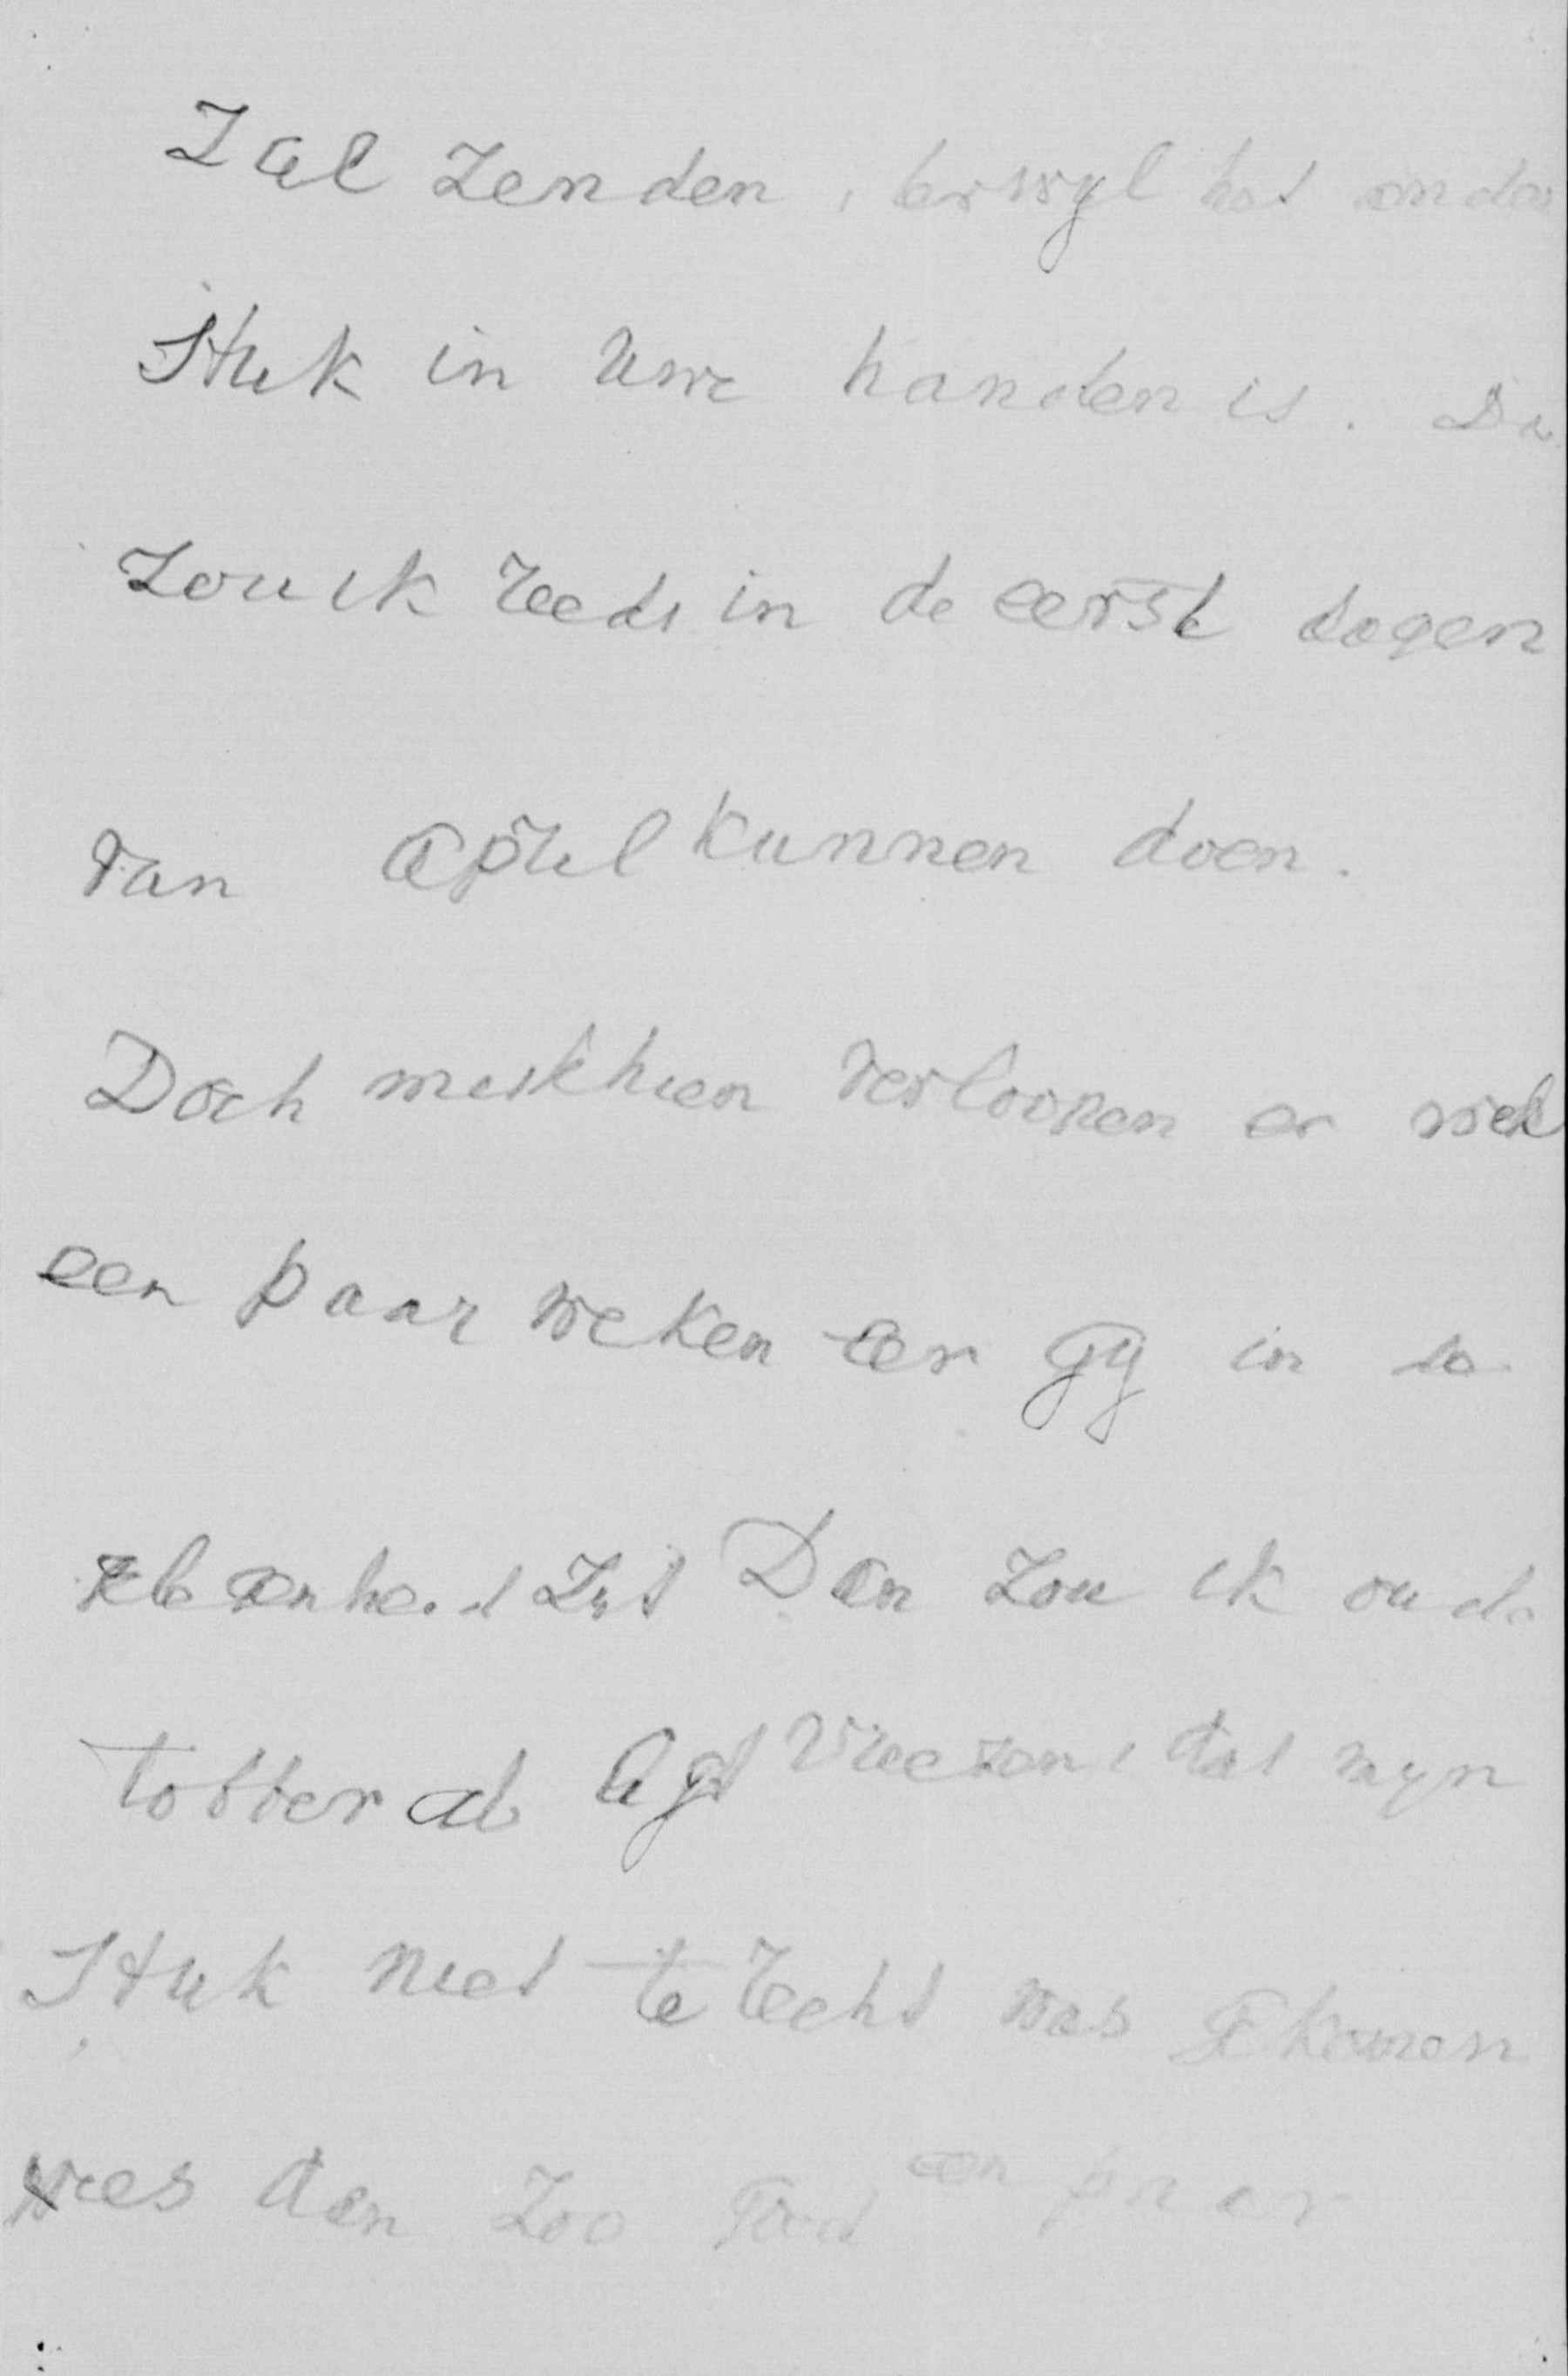 Zal zenden, terwyl het ander
Stuk in Uwe handen is. Da
Zou ik reeds in de eerste dagen
van April kunnen doen.
Doch misschien verloopen er wel
een paar weken eer gy in de
gelegenheid zyt Dan zou ik oude
tobber als Agt vreezen, dat myn
Stuk niet te recht was gekomen
wees dan zoo goed een paar